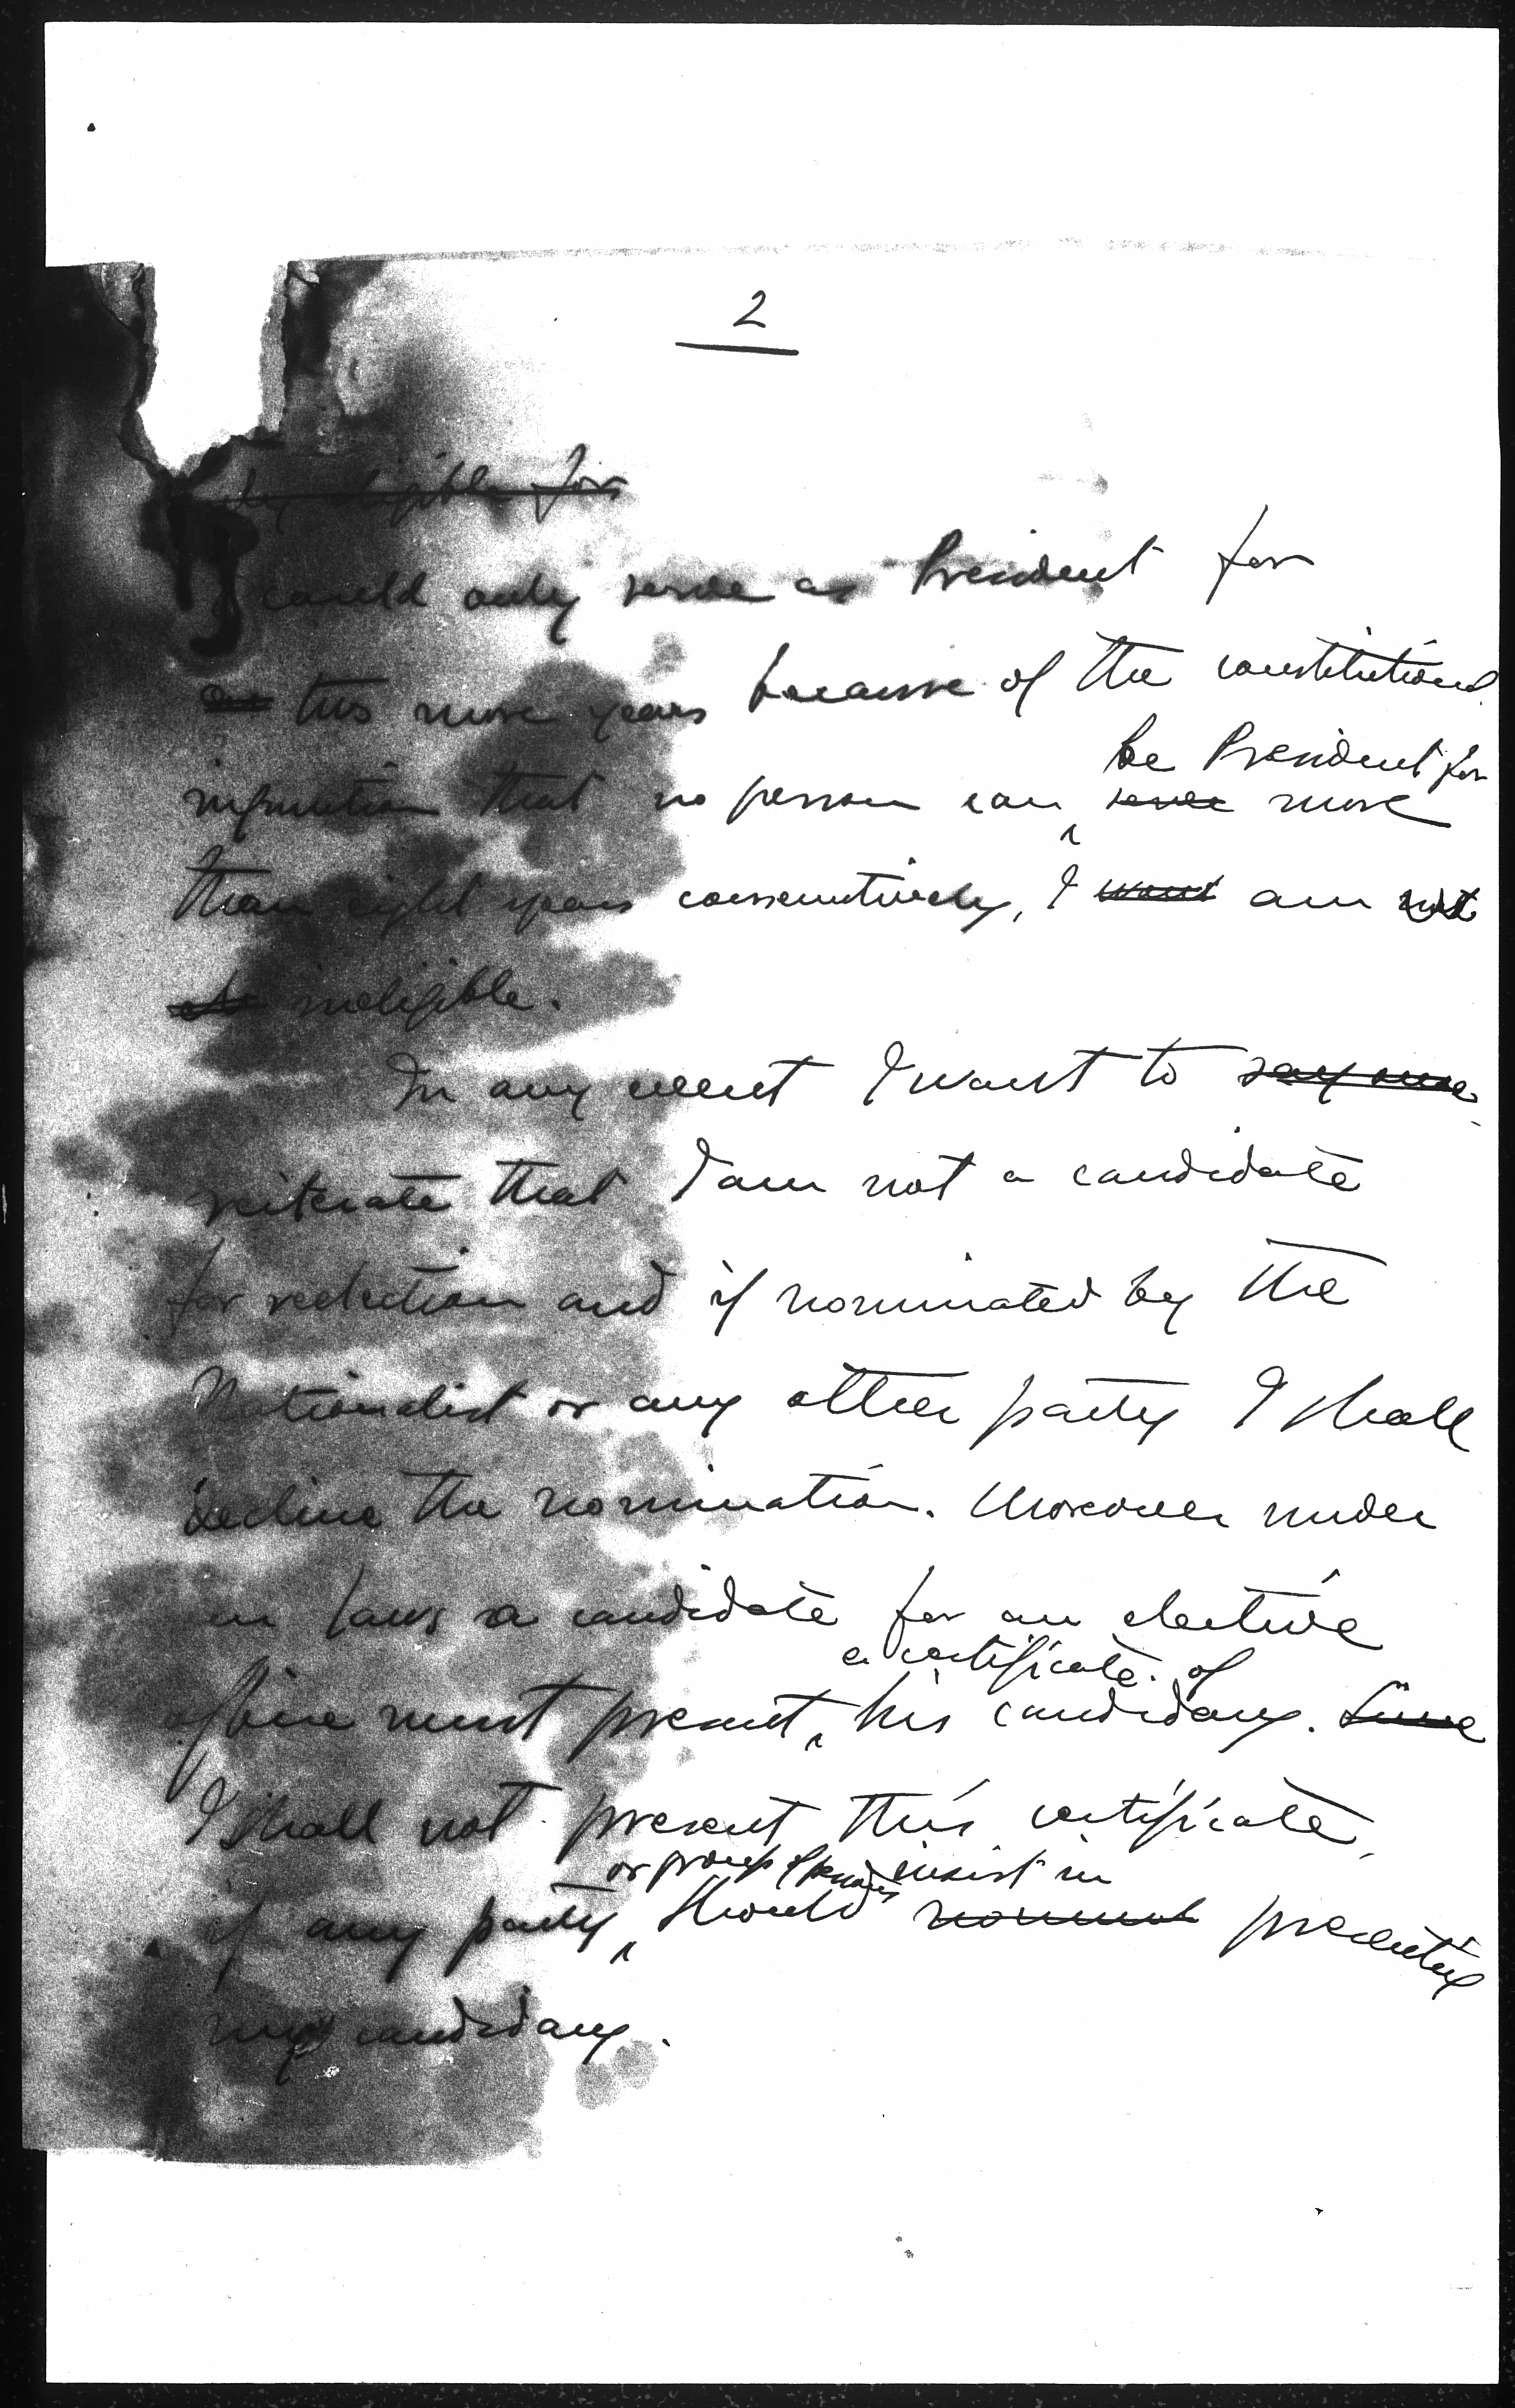 2
eligible for
I could only serve as President for
two more years because of the constitutional
injunction that no person can serve more
be President for
than eight years consecutively, I want am not
ineligible.
In any event I want to say here
reiterate that I am not a candidate
for reelection and if nominated by the
Nationalist or any other party I shall
decline the nomination. Moreover under
our laws a candidate for an elective
a certificate of
office must present his candidacy. Since
I shall not present this certificate,
or group of persons insist in
if any party, should presenting
my candidacy.